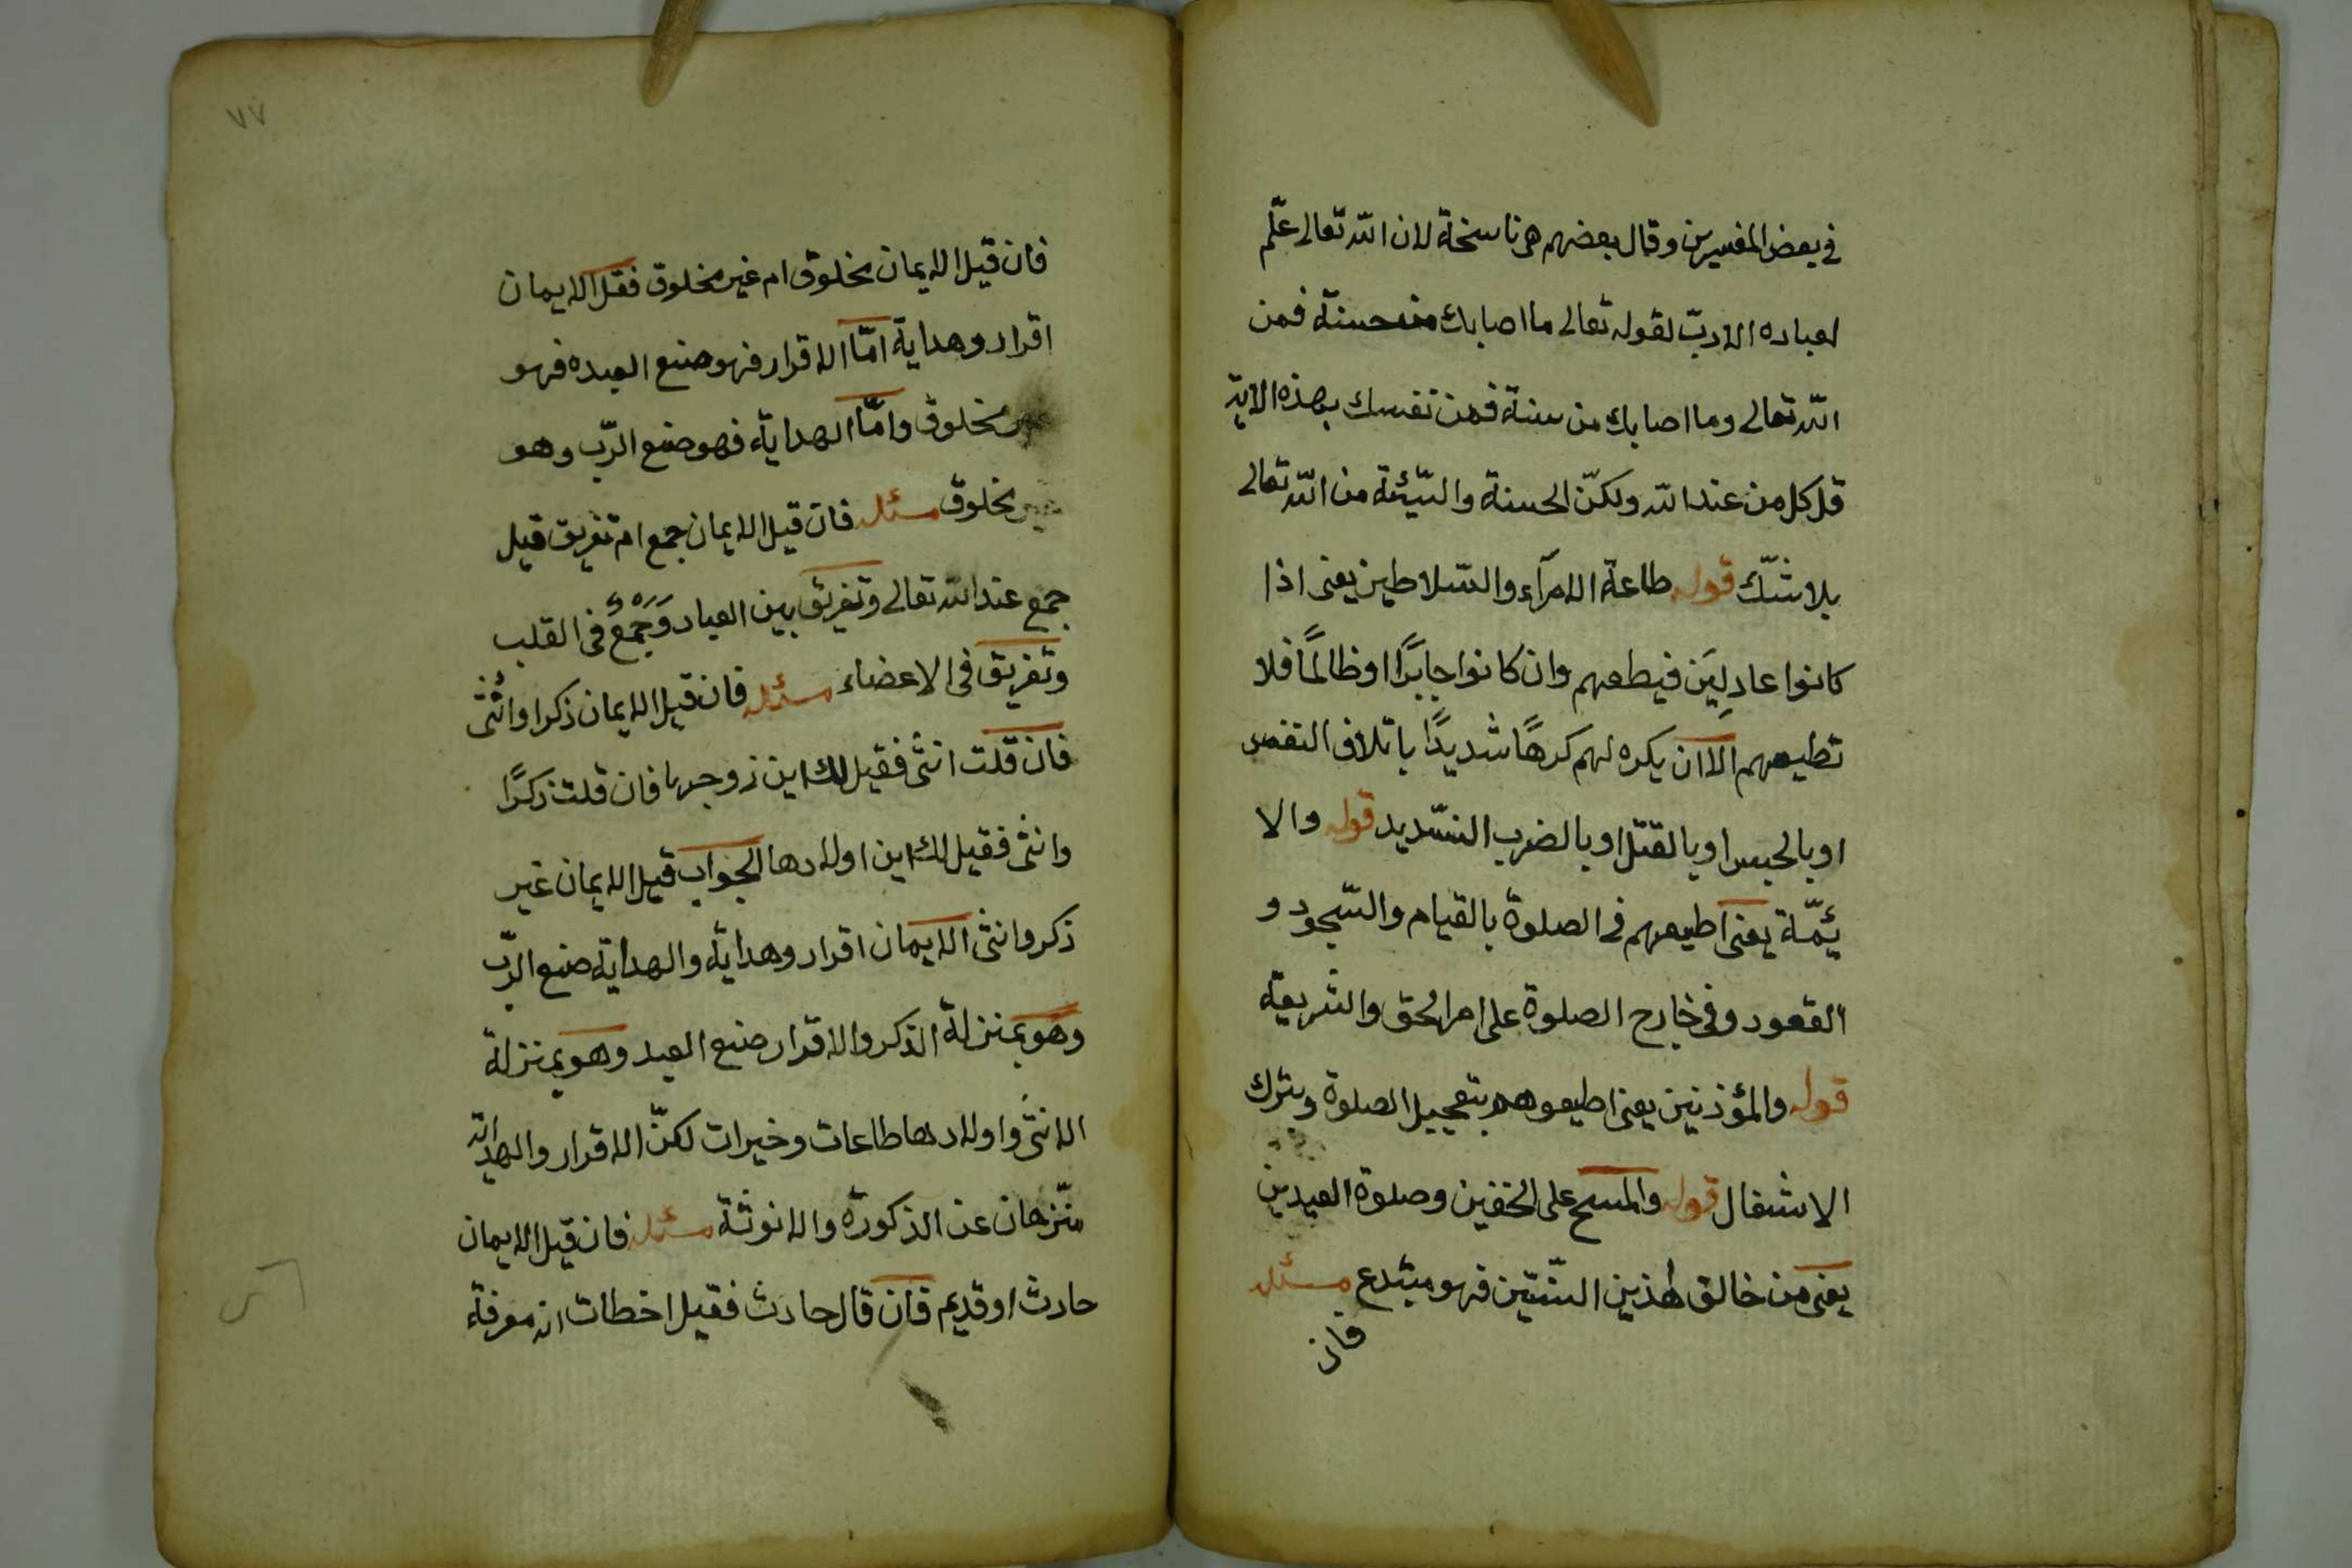 في بعض المفسرين وقال بعضهم هي ناسخة لان الله تعالى علّم
لعباده الادبّ لقوله تعالى ما اصابك من حسنة فمن
الله تعالى وما اصابك من سئة فمن نفسك بهذه الاية
قل كل من عند الله ولكنّ الحسنة والسّيّئة من الله تعالى
بلا شكّ قوله طاعة الامرآء والسّلاطين يعنى اذا
كانوا عادلِيَن فيطعهم وان كانوا جابرًا او ظالمًا فلا
تطيعهم الّا ان يكره لهم كرهًا شديدًا باتلاف النفس
او بالحبس او بالقتل او بالضرب الشّديد قوله والا
ئمّة يعنى اطيعهم فى الصلوة بالقيام والسّجود و
القعود وفى خارج الصلوة على امر الحق والشريعة
قوله والمؤذنين يعنى اطيعوهم بتعجيل الصلوة وبترك
الاشغال قوله والمسح على الخفين وصلوة العيدين
يعنى من خالف هذين السّنّتين فهو مبتدع مسئله
فان
٧٧
فان قيل الايمان مخلوق ام غير مخلوق فقل الايمان
اقرار وهداية امّا الاقرار فهو صنع العبده فهو
مخلوق وامّا الهداية فهو صنع الرّب وهو
غير مخلوق مسئله فان قيل الايمان جمع ام تفريق قيل
جمع عند الله تعالى وتفريق بين العباد وَجَمْعٌ فى القلب
وتفريق فى الاعضاء مسئله فان قيل الايمان ذكر اوانُثى
فان قلت انثى فقيل لك اين زوجها فان قلت ذكرًا
وانثى فقيل لك اين اولادها الجواب قيل الايمان غير
ذكر وانثى الايمان اقرار وهداية والهداية صنع الرّب
وهو بمنزلة الذكر والاقرار صنع العبد وهو بمنزلة
الانثى واولادها طاعات وخيرات لكنّ الاقرار والهداية
منّزهان عن الذكورة والانوثة مسئله فان قيل الايمان
حادث او قديم فان قال حادث فقيل اخطات انه معرفة